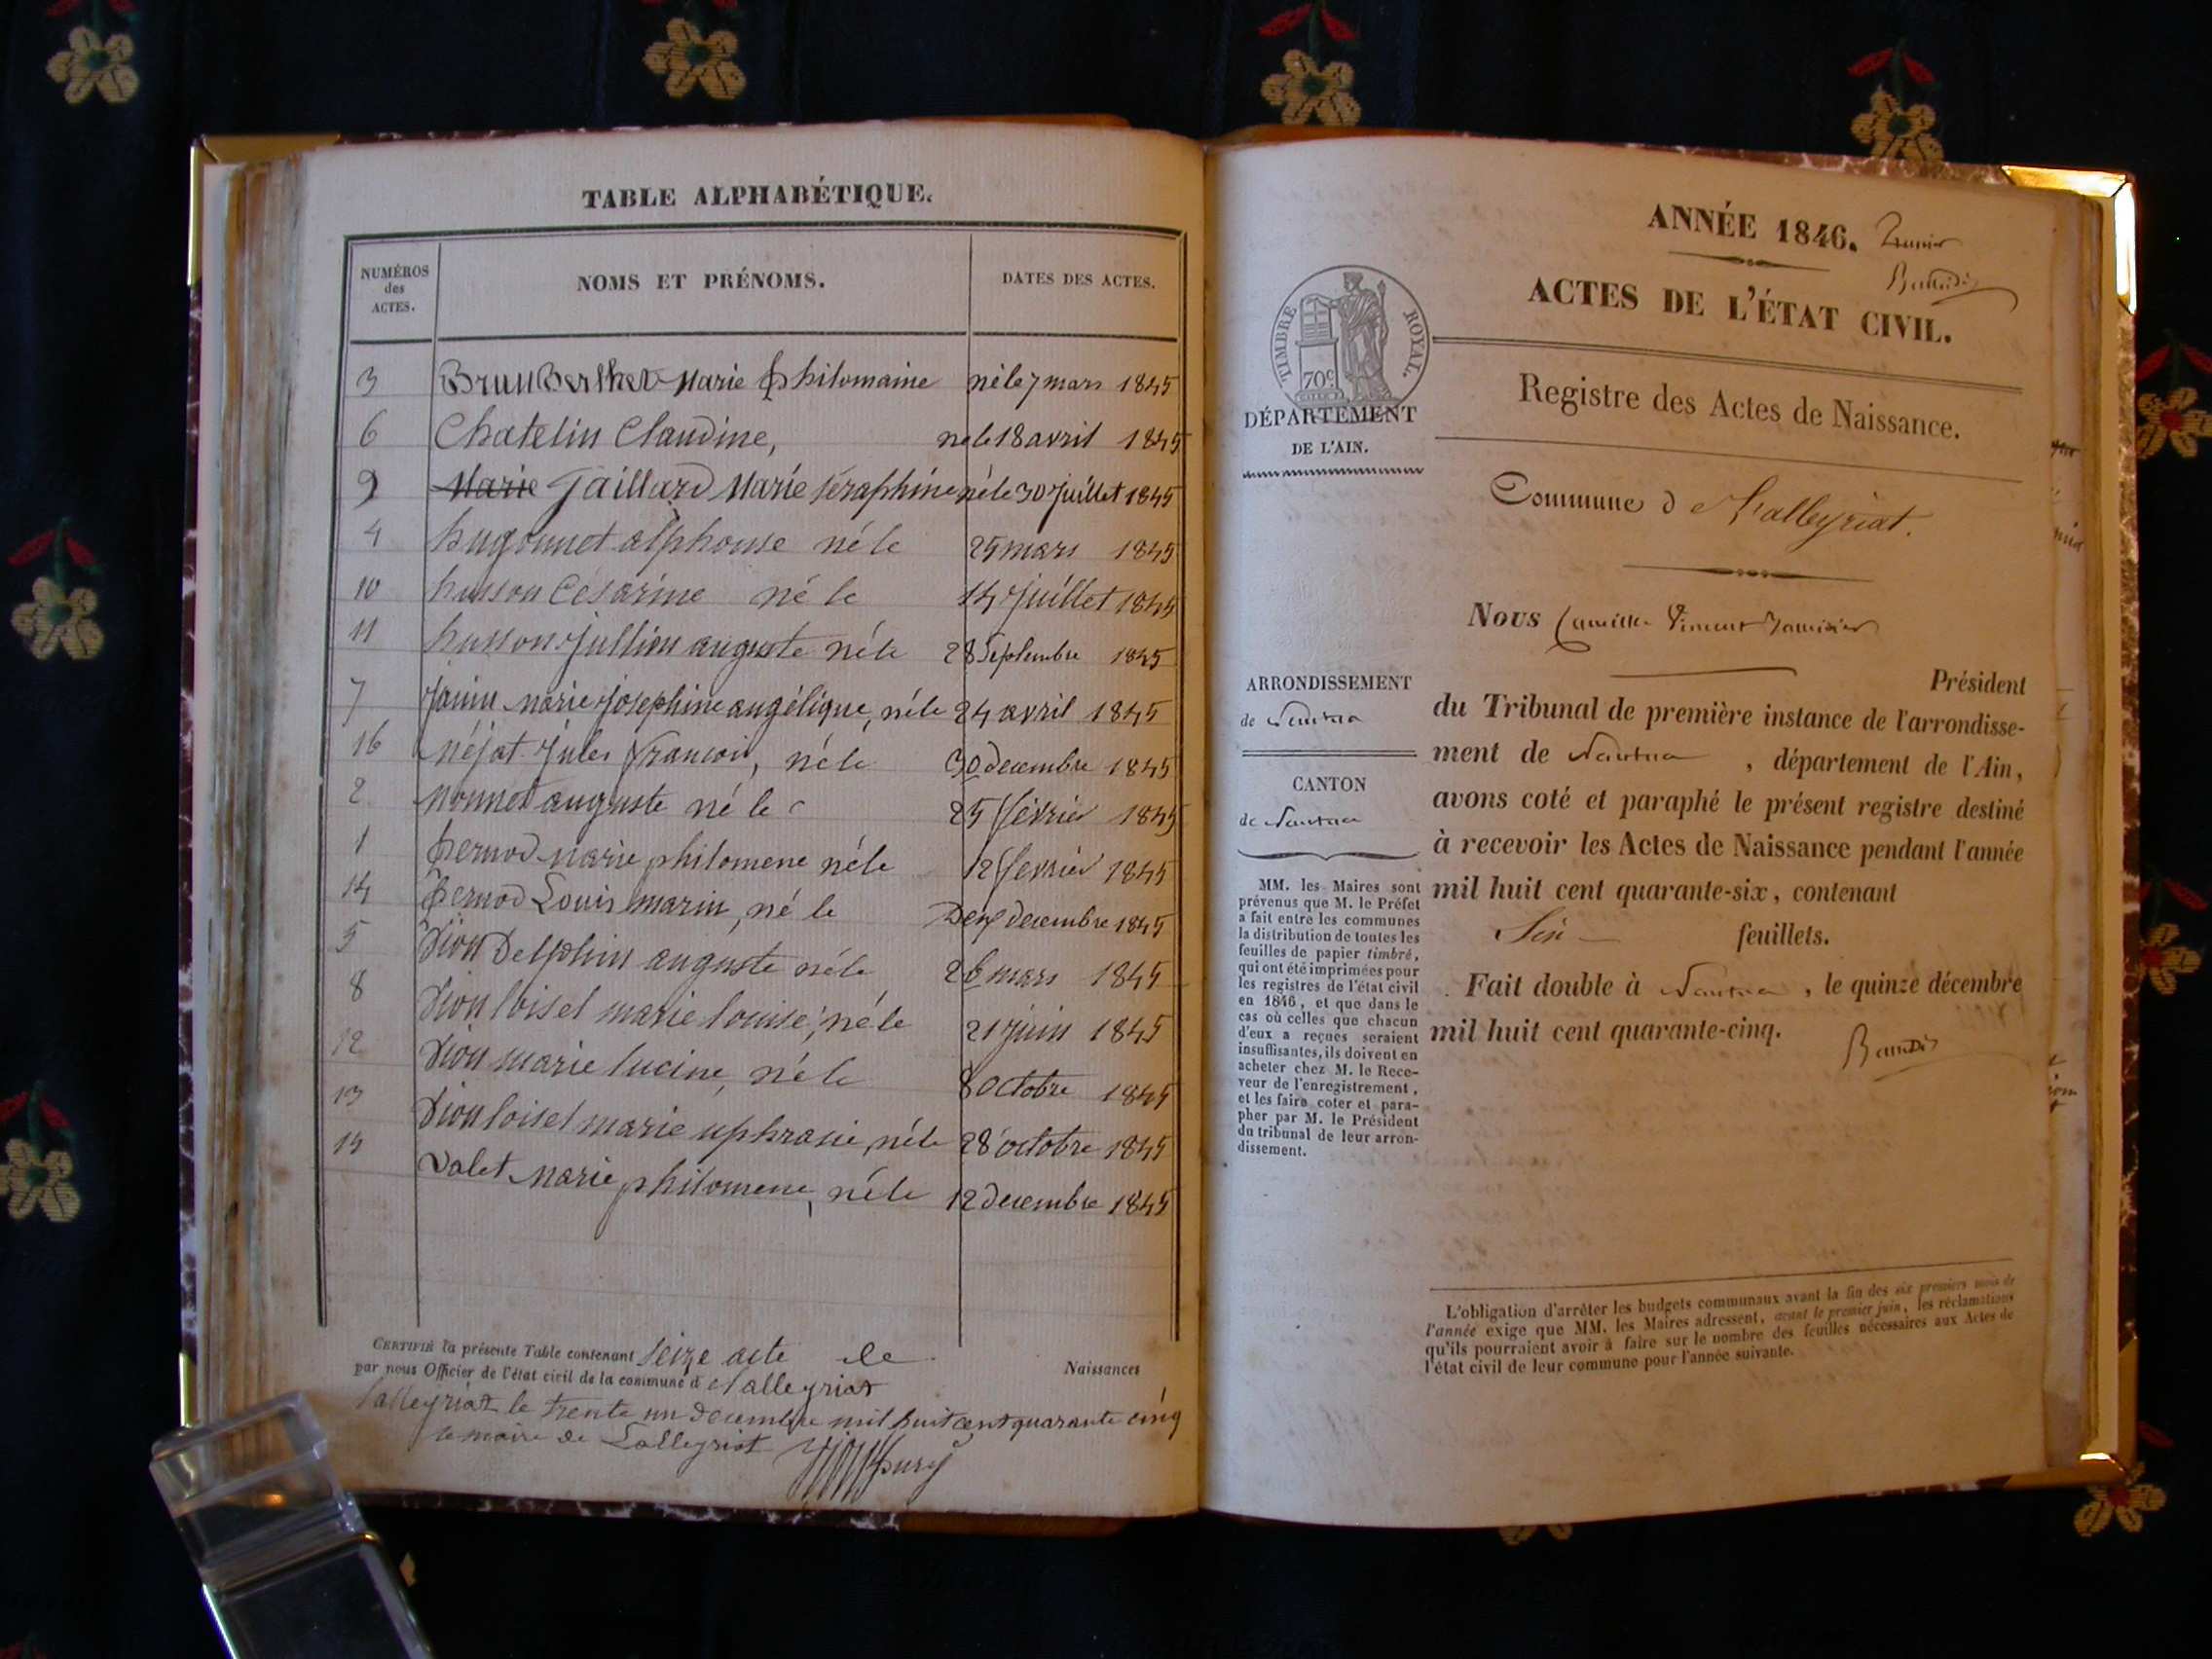 TABLE ALPHABÉTIQUE.
NUMÉROS
des
ACTES.
NOMS ET PRÉNOMS.
DATES DES ACTES.
3 Brun Berthet Marie philomaine né le 7 mars 1845
6 Chatelin Claudine, né le 18 avril 1845
9 Marie Gaillard Marie séraphine né le 30 Juillet 1845
4 hugonnet alphonse né le 25 mars 1845
10 husson Césarine né le 14 Juillet 1845
11 husson Jullien auguste né le 28 Septembre 1845
7 Janin marie Josephine angélique, né le 24 avril 1845
16 Jules francois, né le 30 decembre 1845
2 Monnet auguste né le 25 février 1845
1 Pernod Marie philomene né le 12 fevrier 1845
14 Pernod Louis marin, né le Dix decembre 1845
5 Vion Delphin auguste né le 26 mars 1845
8 Vion loisel marie louise, né le 21 juin 1845
12 Vion marie lucine, né le 8 octobre 1845
13 Vion loisel marie uphrasie, né le 28 octobre 1845
15 Valet Marie philomene, né le 12 decembre 1845
CERTIFIÉ la présente Table contenant Seize acte de Naissances
par nous Officier de l'état civil de la commune d Salleyriat
Salleyriat le trente un decembre mil huit cent quarante cinq
le maire de Salleyriat
ANNÉE 1846.
ACTES DE L'ÉTAT CIVIL.
TIMBRE ROYAL.
70c
DÉPARTEMENT
DE L'AIN.
Registre des Actes de Naissance.
Commune d e Salleyriat.
Nous Camille Vincent
Président
ARRONDISSEMENT
de Nantua
CANTON
de Nantua
du Tribunal de première instance de l'arrondisse-
ment de Nantua, département de l'Ain,
avons coté et paraphé le présent registre destiné
à recevoir les Actes de Naissance pendant l'année
mil huit cent quarante-six, contenant
Six feuillets.
Fait double à Nantua, le quinze décembre
mil huit cent quarante-cinq.
MM. les Maires sont
prévenus que M. le Préfet
a fait entre les communes
la distribution de toutes les
feuilles de papier timbré,
qui ont été imprimées pour
les registres de l'état civil
en 1846, et que dans le
cas où celles que chacun
d'eux a reçues seraient
insuffisantes, ils doivent en
acheter chez M. le Rece-
veur de l'enregistrement,
et les faire coter et para-
pher par M. le Président
du tribunal de leur arron-
dissement.
L'obligation d'arrêter les budgets communaux avant la fin des six premiers mois de
l'année exige que MM. les Maires adressent, avant le premier juin, les réclamations
qu'ils pourraient avoir à faire sur le nombre des feuilles nécessaires aux Actes de
l'état civil de leur commune pour l'année suivante.